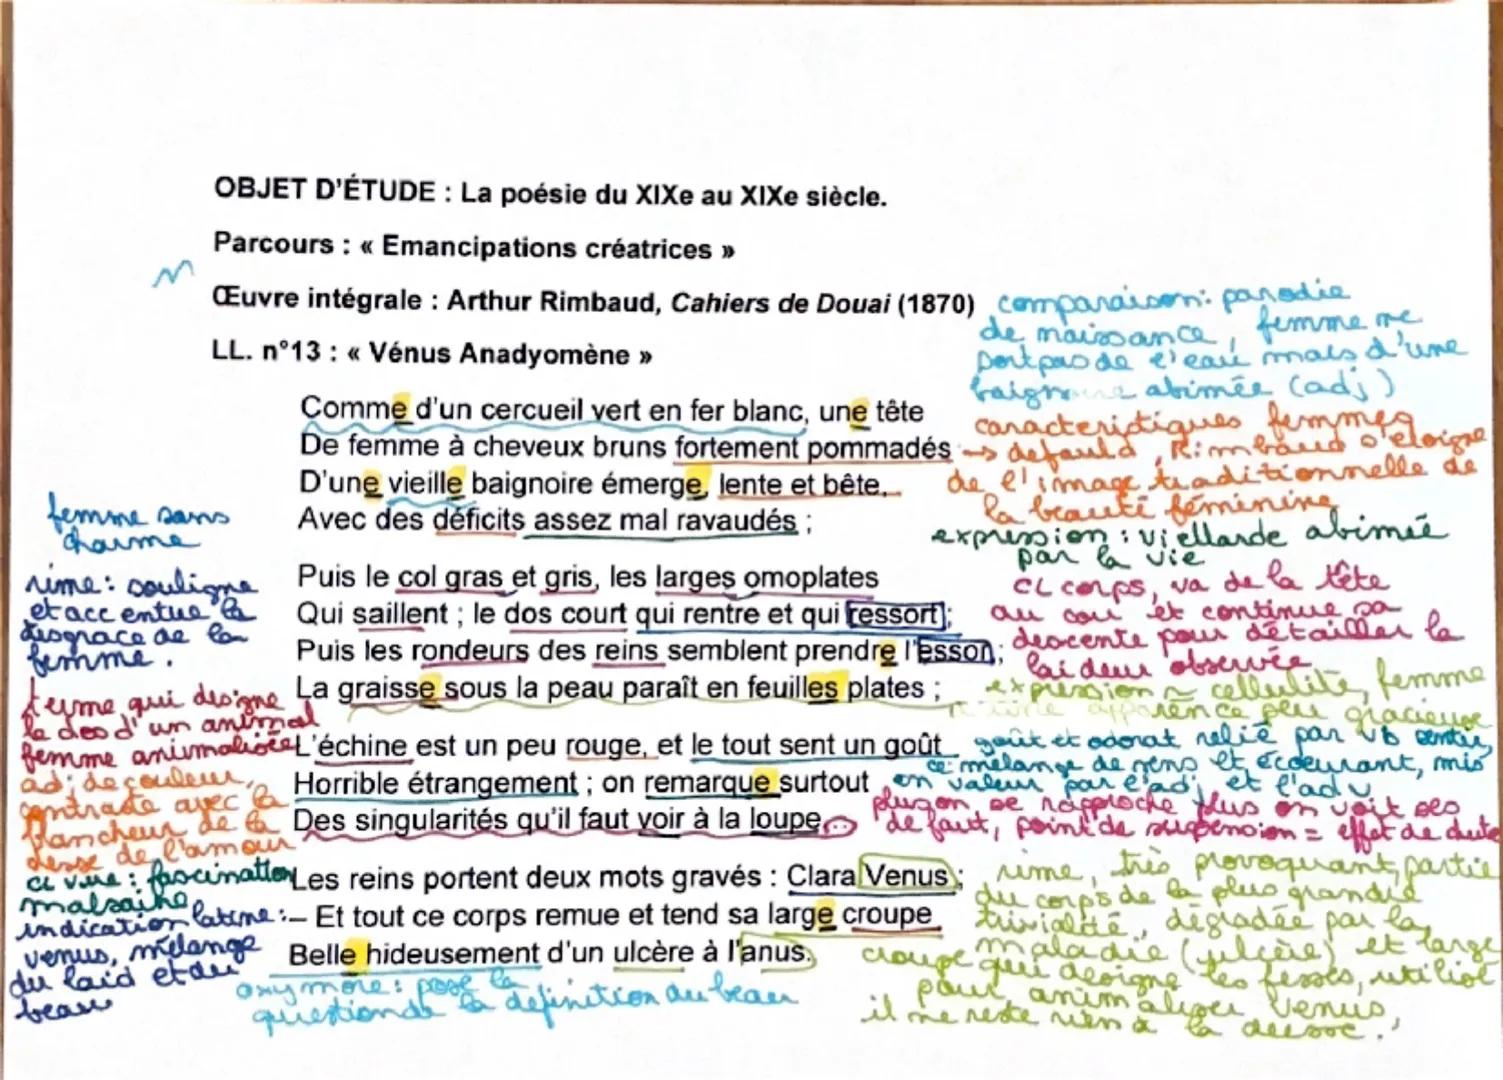 OBJET D'ÉTUDE : La poésie du XIXe au XIXe siècle.
Parcours : « Emancipations créatrices »
Œuvre intégrale : Arthur Rimbaud, Cahiers de Douai (1870)
LL. n°13 : « Vénus Anadyomène »
Comme d'un cercueil vert en fer blanc, une tête
De femme à cheveux bruns fortement pommadés
D'une vieille baignoire émerge, lente et bête,
Avec des déficits assez mal ravaudés ;
Puis le col gras et gris, les larges omoplates
Qui saillent ; le dos court qui rentre et qui ressort ;
Puis les rondeurs des reins semblent prendre l'essor ;
La graisse sous la peau paraît en feuilles plates ;
L'échine est un peu rouge, et le tout sent un goût
Horrible étrangement ; on remarque surtout
Des singularités qu'il faut voir à la loupe...
Les reins portent deux mots gravés : Clara Venus ;
– Et tout ce corps remue et tend sa large croupe
Belle hideusement d'un ulcère à l'anus.
comparaison : parodie
de naissance, femme ne
sort pas de l'eau mais d'une
baignoire abimée (adj)
caractéristiques femmes
→ défauld, Rimbaud s'éloigne
de l'image traditionnelle de
la beauté féminine
expression : viellarde abimée
par la vie
CL corps, va de la tête
au cou et continue sa
descente pour détailler la
laideur observée
expression ~ cellulite, femme
apparence peu gracieuse
goût et odorat relié par vb sentir,
ce mélange de sens et écoeurant, mis
en valeur par l'adj et l'adv
plus on se rapproche plus on voit ses
défaut, point de suspension = effet de
rime, très provoquant, partie
du corps de la plus grande
trivialité, dégradée par la
maladie (ulcère) et large
croupe qui designe les fesses, utilisé
pour animaliser Venus,
il ne reste rien à la déesse.
femme sans
charme
rime : souligne
et accentue la
disgrace de la
femme.
terme qui designe
le dos d'un animal
femme animalisée
adj de couleur,
contraste avec la
blancheur de la
de l'amour
cl vue : fascination
malsaine
indication latine :
venus, mélange
du laid et du
beau
oxymore : pose la
question de la définition du beau